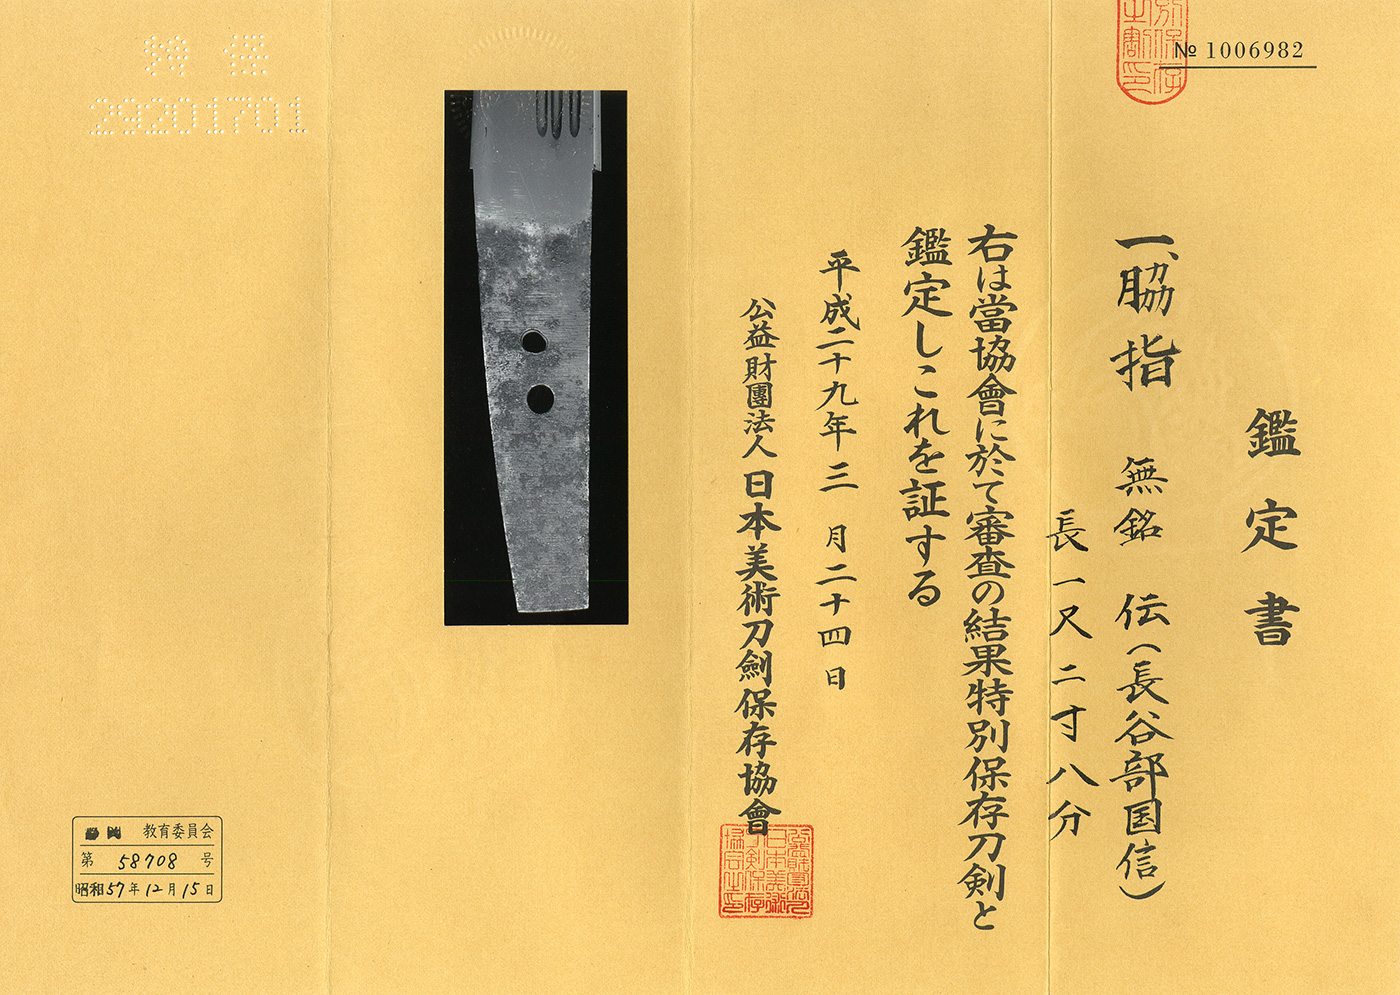 № 1006982
鑑定書
一、脇指 無銘 伝(長谷部国信)
長一尺二寸八分
右は當協會に於て審査の結果特別保存刀剣と
鑑定しこれを証する
平成二十九年三月二十四日
公益財團法人日本美術刀劍保存協會
特保
29201701
教育委員会
第 58708 号
昭和57年12月15日